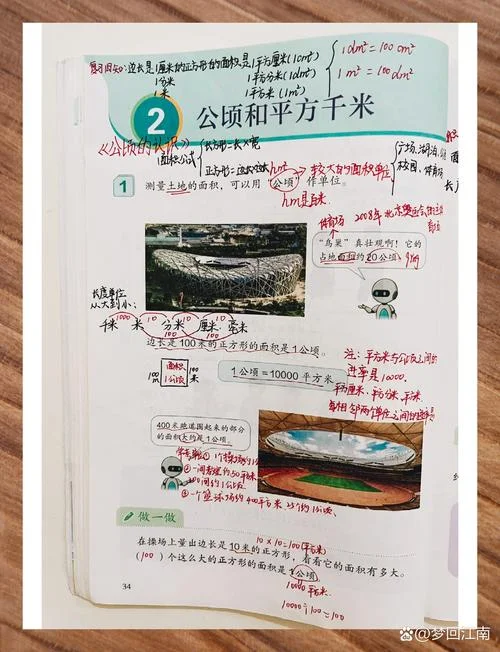 复习旧知:边长是1厘米的正方形的面积是1平方厘米(1cm²)
1分米 1平方分米(1dm²)
1米 1平方米(1m²)
1dm²=100cm²
1m²=100dm²
2 公顷和平方千米
《公顷的认识》
面积公式
长方形=长×宽
正方形=边长×边长
hm²
较大的面积单位
广场、湖泊
校园、体育场
1 测量土地的面积,可以用“公顷”作单位。
hm是百米
体育场 2008年北京奥运会
“鸟巢”真壮观啊!它的
占地面积约20公顷。
长度单位
从大到小:
1000 10 10 10
千米 米 分米 厘米 毫米
100 100
边长是100米的正方形的面积是1公顷。
100米
面积
1公顷
100米
1公顷=10000平方米
注:平方米与公顷之间的
进率是10000,
平方厘米、平方分米、平方米
每相邻两个单位之间的进率是
400米跑道围起来的部分
的面积大约是1公顷。
②一间教室约50平方米
200间约1公顷
③一个篮球场约400平方米 25个约1公顷、
做一做
10×10=100(平方米)
在操场上量出边长是10米的正方形,看看它的面积有多大。
(100)个这么大的正方形的面积是1公顷。
10000平方米
10000÷100=100
34
@梦回江南